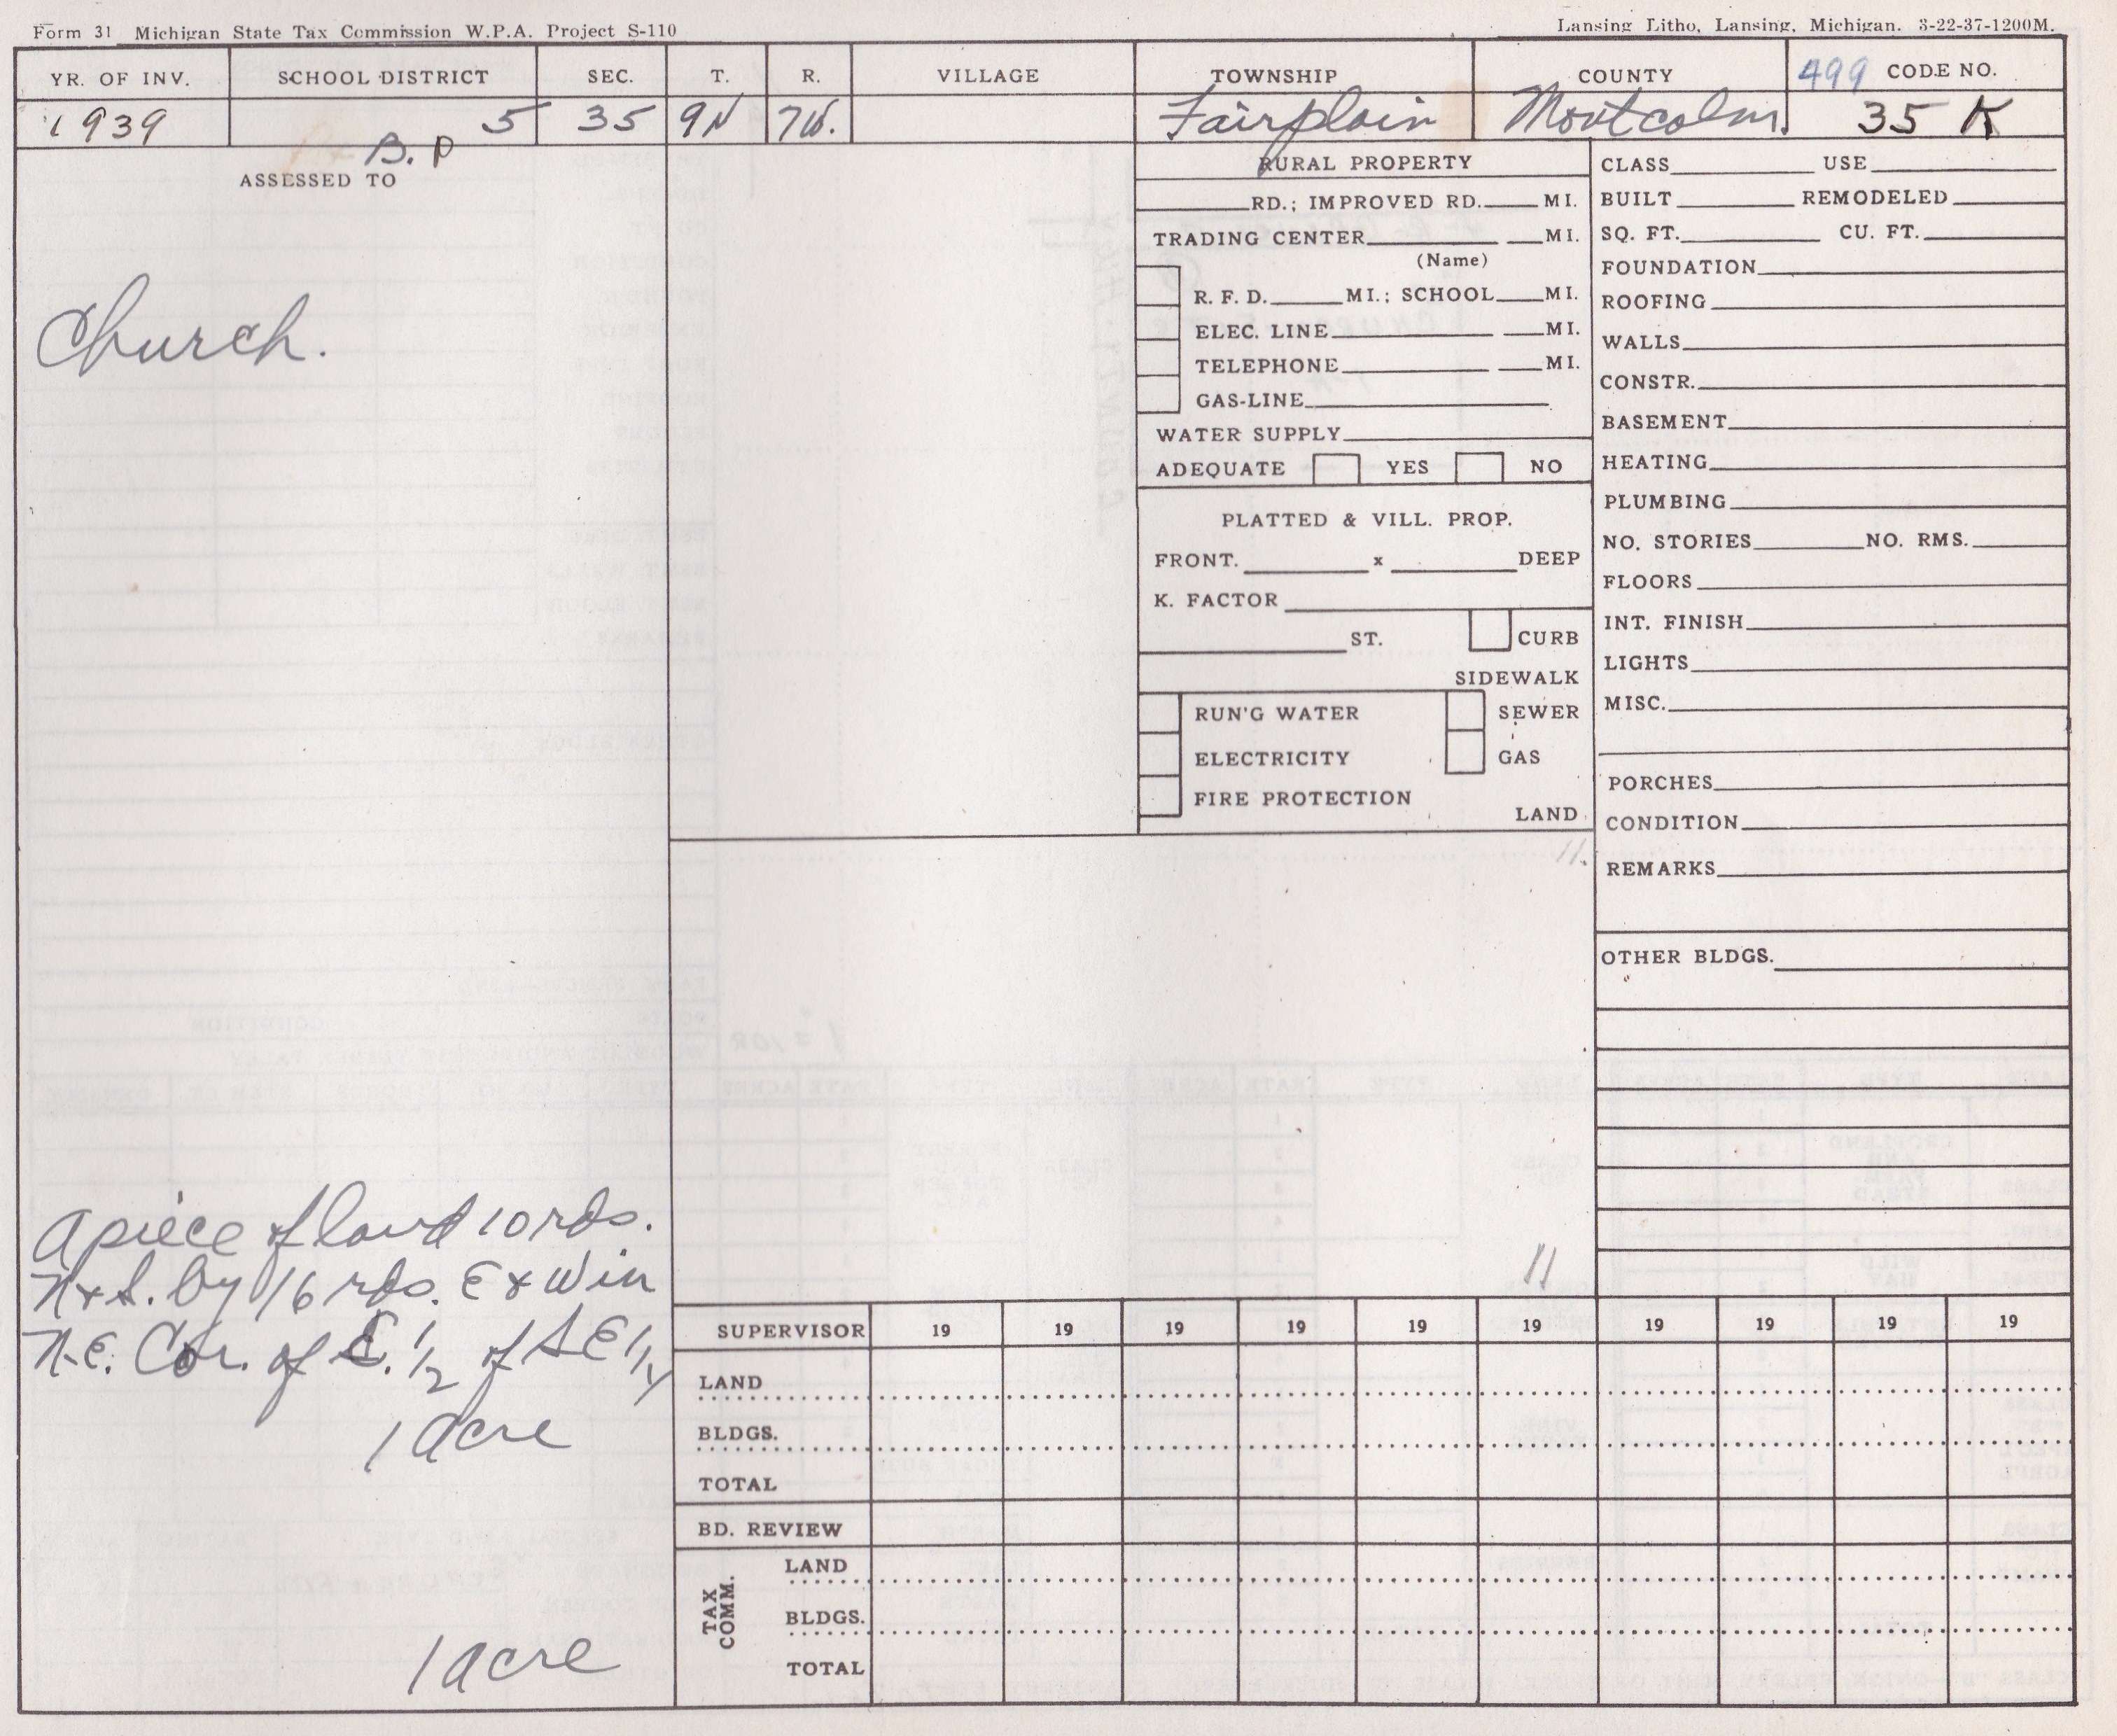 Form 31 Michigan State Tax Commission W.P.A. Project S-110
Lansing Litho, Lansing, Michigan. 3-22-37-1200M.
YR. OF INV. SCHOOL DISTRICT SEC. T. R. VILLAGE TOWNSHIP COUNTY 499 CODE NO.
1939 5 35 9N 7W. Fairplain Montcalm. 35 K
B. P
ASSESSED TO
Church.
A piece of land 10 rds.
N & S. by 16 rds. E & W in
N.E. Cor. of E. 1/2 of S E 1/4
1 acre
1 acre
RURAL PROPERTY
RD.; IMPROVED RD. MI.
TRADING CENTER MI.
(Name)
R. F. D. MI.; SCHOOL MI.
ELEC. LINE MI.
TELEPHONE MI.
GAS-LINE
WATER SUPPLY
ADEQUATE YES NO
PLATTED & VILL. PROP.
FRONT. x DEEP
K. FACTOR
ST. CURB
SIDEWALK
RUN'G WATER SEWER
ELECTRICITY GAS
FIRE PROTECTION
LAND
11.
11
CLASS USE
BUILT REMODELED
SQ. FT. CU. FT.
FOUNDATION
ROOFING
WALLS
CONSTR.
BASEMENT
HEATING
PLUMBING
NO. STORIES NO. RMS.
FLOORS
INT. FINISH
LIGHTS
MISC.
PORCHES
CONDITION
REMARKS
OTHER BLDGS.
SUPERVISOR 19 19 19 19 19 19 19 19 19 19
LAND
BLDGS.
TOTAL
BD. REVIEW
TAX COMM.
LAND
BLDGS.
TOTAL